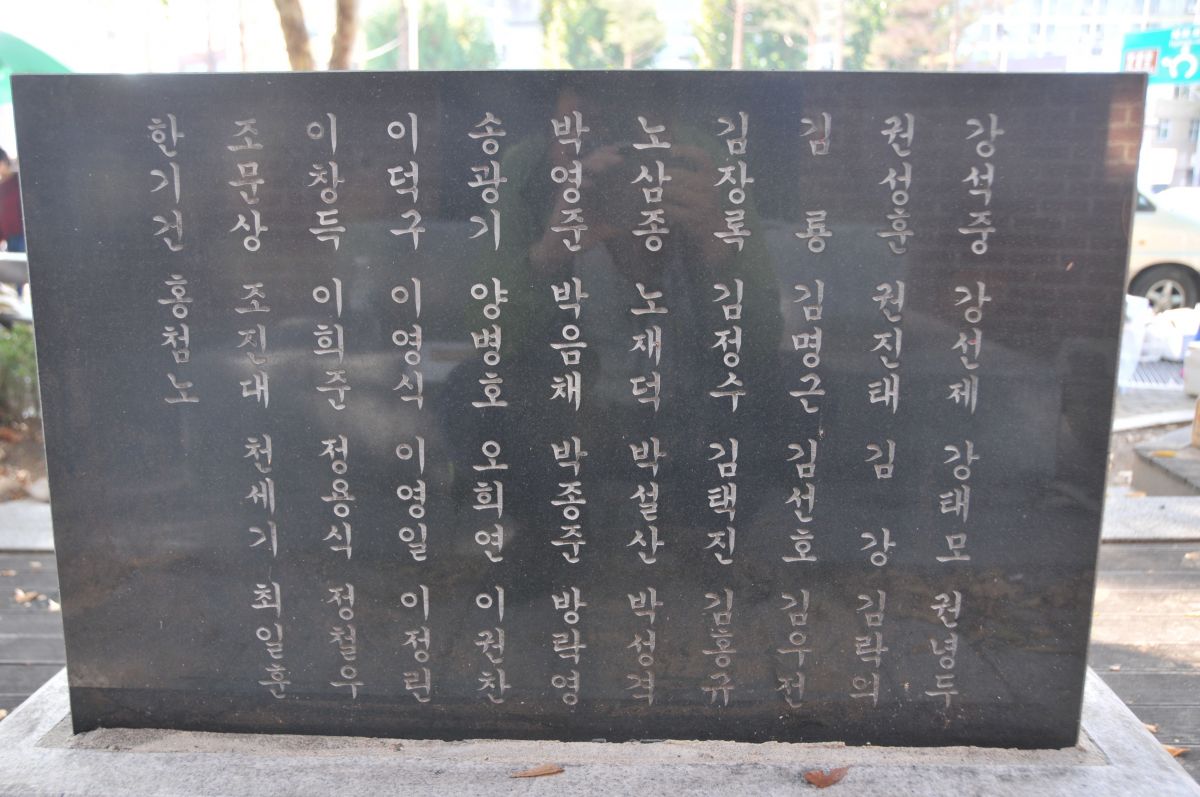 강석중 강선제 강태모 권녕두
권성훈 권진태 김강 김락의
김룡 김명근 김선호 김우전
김장록 김정수 김택진 김홍규
노삼종 노재덕 박설산 박성걱
박영준 박음채 박종준 방락영
송광기 양병호 오희연 이권찬
이덕구 이영식 이영일 이정린
이창득 이희준 정용식 정철우
조문상 조진대 천세기 최일훈
한기건 홍첨노